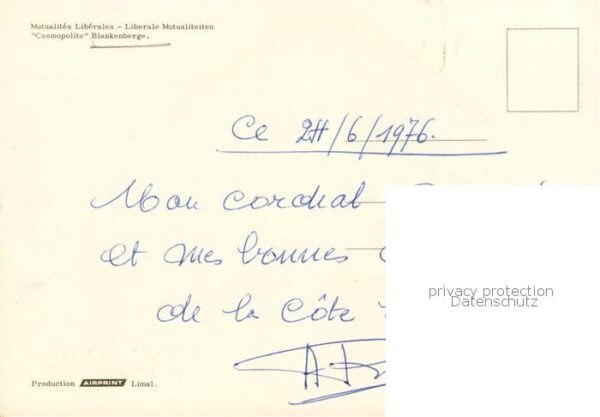 Mutualités Libérales - Liberale Mutualiteiten
"Cosmopolite" Blankenberge.
Ce 24/6/1976.
Mon cordial
et mes bonnes
privacy protection
Datenschutz
de la Côte
Production AIRPRINT Limal.